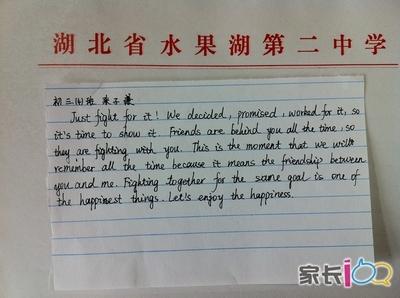 湖北省水果湖第二中学
初三(4)班 朱子谦
Just fight for it! We decided, promised, worked for it, so
it's time to show it. Friends are behind you all the time, so
they are fighting with you. This is the moment that we will
remember all the time because it means the friendship between
you and me. Fighting together for the same goal is one of
the happinest things. Let's enjoy the happiness.
家长100